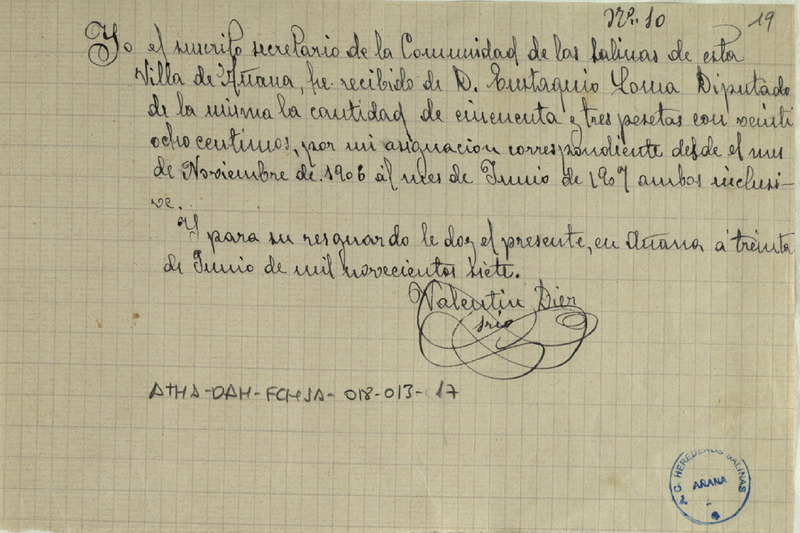 Nº. 10
19
Yo el suscrito secretario de la Comunidad de las Salinas de esta
Villa de Añana, he recibido de D. Eustaquio Loma Diputado
de la misma la cantidad de cincuenta y tres pesetas con veinti
ocho centimos, por mi asignacion correspondiente desde el mes
de Noviembre de 1906 al mes de Junio de 1907 ambos inclusi-
ve.
Y para su resguardo le doy el presente, en Añana á treinta
de Junio de mil novecientos siete.
Valentin Dier
srio
ATHA-DAH-FCHSA-018-013-17
C. HEREDEROS SALINAS
AÑANA